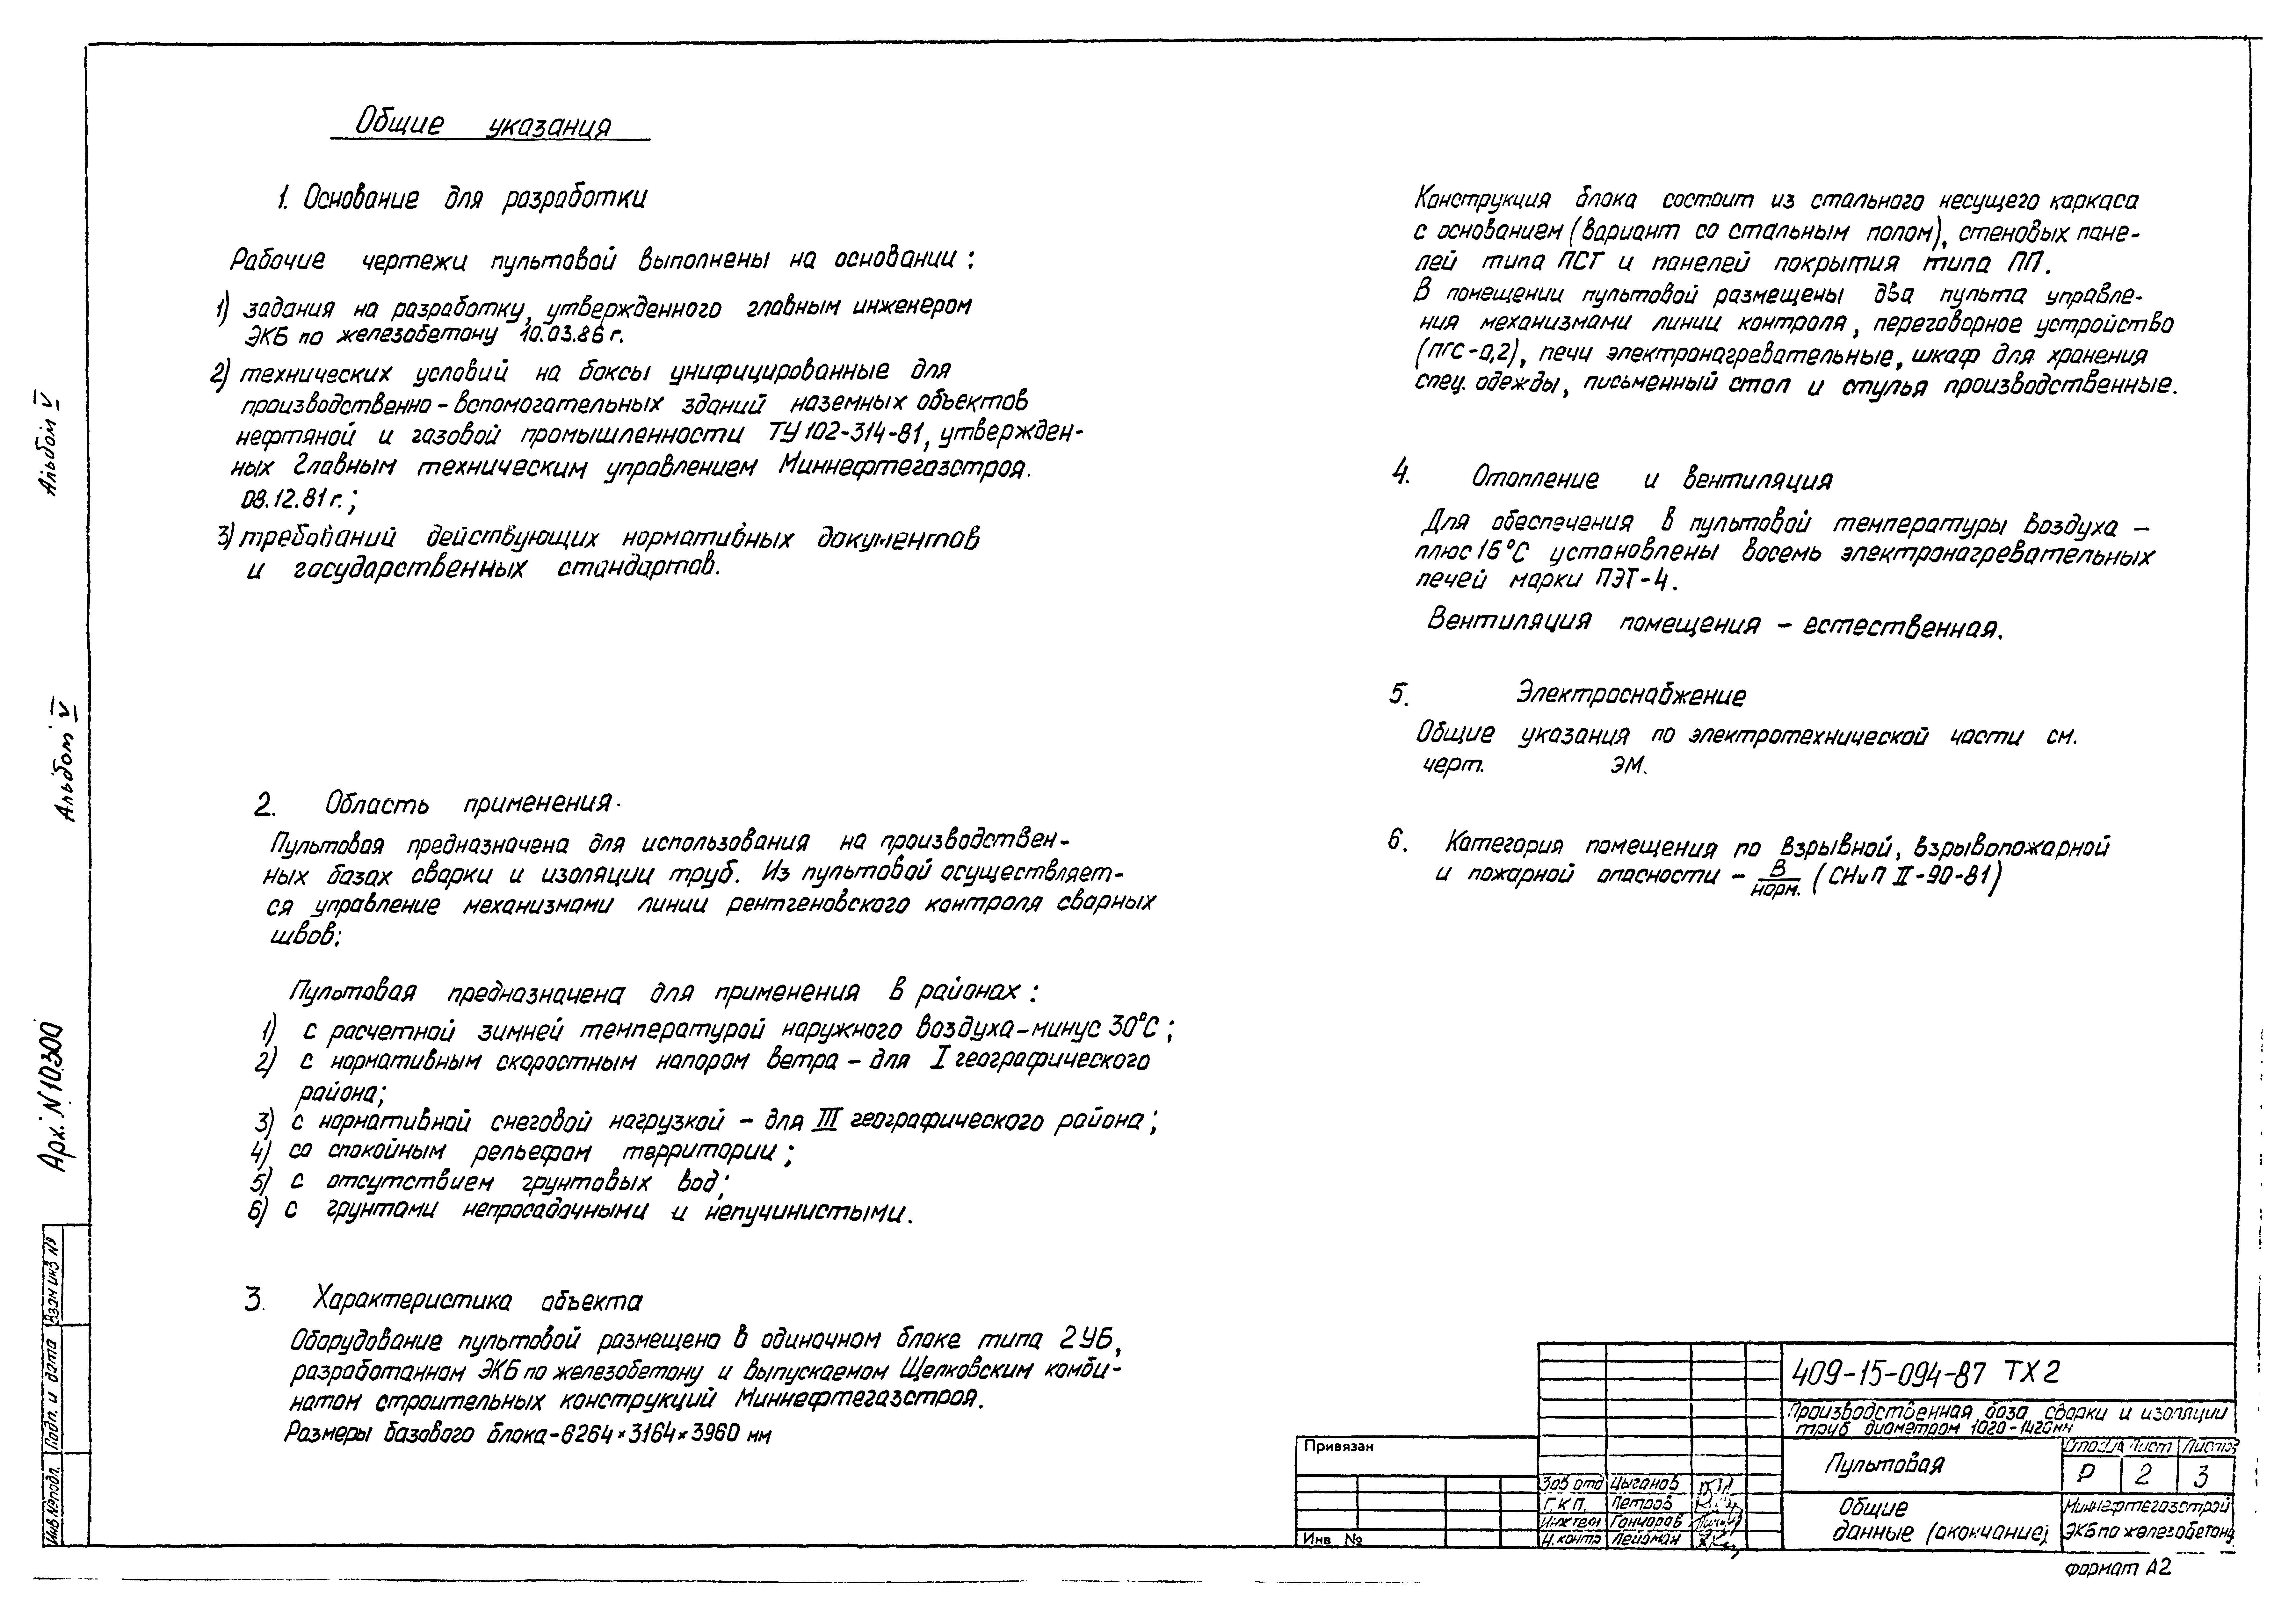 Общие указания
1. Основание для разработки
Рабочие чертежи пультовой выполнены на основании:
1) задания на разработку, утвержденного главным инженером
ЭКБ по железобетону 10.03.86 г.
2) технических условий на боксы унифицированные для
производственно-вспомогательных зданий наземных объектов
нефтяной и газовой промышленности ТУ 102-314-81, утвержден-
ных Главным техническим управлением Миннефтегазстроя.
08.12.81 г.;
3) требований действующих нормативных документов
и государственных стандартов.
2. Область применения.
Пультовая предназначена для использования на производствен-
ных базах сварки и изоляции труб. Из пультовой осуществляет-
ся управление механизмами линии рентгеновского контроля сварных
швов:
Пультовая предназначена для применения в районах:
1) с расчетной зимней температурой наружного воздуха-минус 30°С;
2) с нормативным скоростным напором ветра - для I географического
района;
3) с нормативной снеговой нагрузкой - для III географического района;
4) со спокойным рельефом территории;
5) с отсутствием грунтовых вод;
6) с грунтами непросадочными и непучинистыми.
3. Характеристика объекта
Оборудование пультовой размещено в одиночном блоке типа 2УБ,
разработанном ЭКБ по железобетону и выпускаемом Щелковским комби-
натом строительных конструкций Миннефтегазстроя.
Размеры базового блока-6264×3164×3960 мм
Конструкция блока состоит из стального несущего каркаса
с основанием (вариант со стальным полом), стеновых пане-
лей типа ПСТ и панелей покрытия типа ПП.
В помещении пультовой размещены два пульта управле-
ния механизмами линии контроля, переговорное устройство
(ПГС-0,2), печи электронагревательные, шкаф для хранения
спец. одежды, письменный стол и стулья производственные.
4. Отопление и вентиляция
Для обеспечения в пультовой температуры воздуха -
плюс 16°С установлены восемь электронагревательных
печей марки ПЭТ-4.
Вентиляция помещения - естественная.
5. Электроснабжение
Общие указания по электротехнической части см.
черт. ЭМ.
6. Категория помещения по взрывной, взрывопожарной
и пожарной опасности - В/норм. (СНиП II-90-81)
Альбом V
Альбом V
Арх. N 10300
Взам инв №
Подп. и дата
Инв.№подл.
Привязан
Инв №
Зав отд Цыганов
Г.К.П. Петров
Инж техн Гончаров
Н.контр Лейзман
409-15-094-87 ТХ2
Производственная база сварки и изоляции
труб диаметром 1020-1420мм
Пультовая
Стадия Лист Листов
Р 2 3
Общие
данные (окончание)
Миннефтегазстрой
ЭКБ по железобетону
формат А2